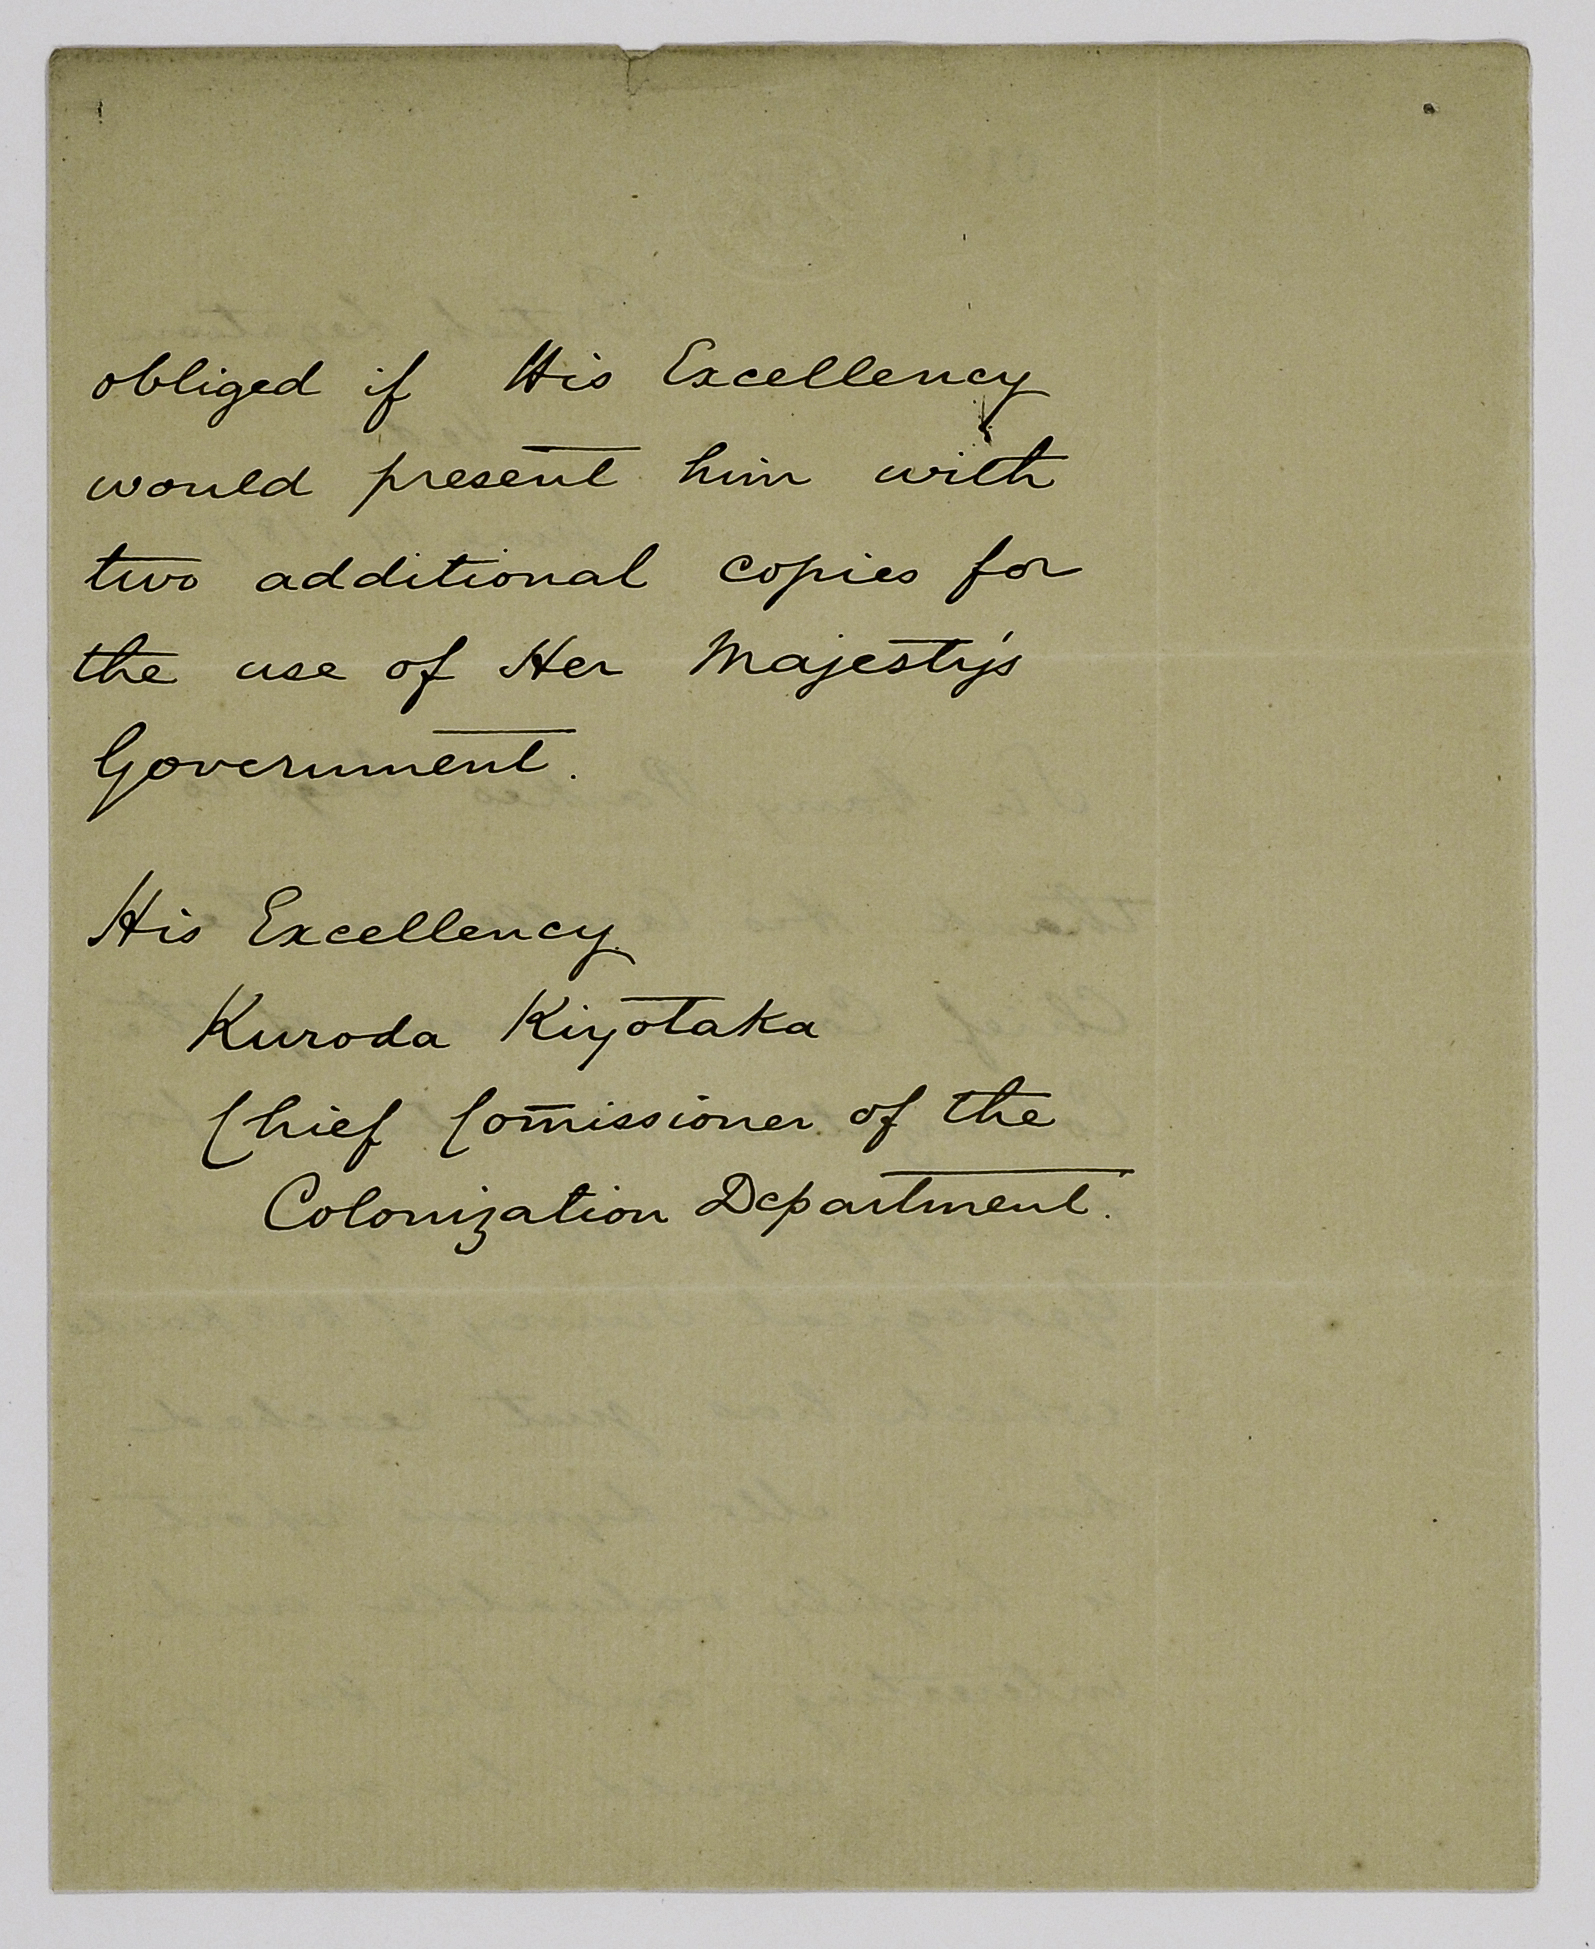 obliged if His Excellency
would present him with
two additional copies for
the use of Her Majesty's
Government.
His Excellency
Kuroda Kiyotaka
Chief Com̄issioner of the
Colonization Department.